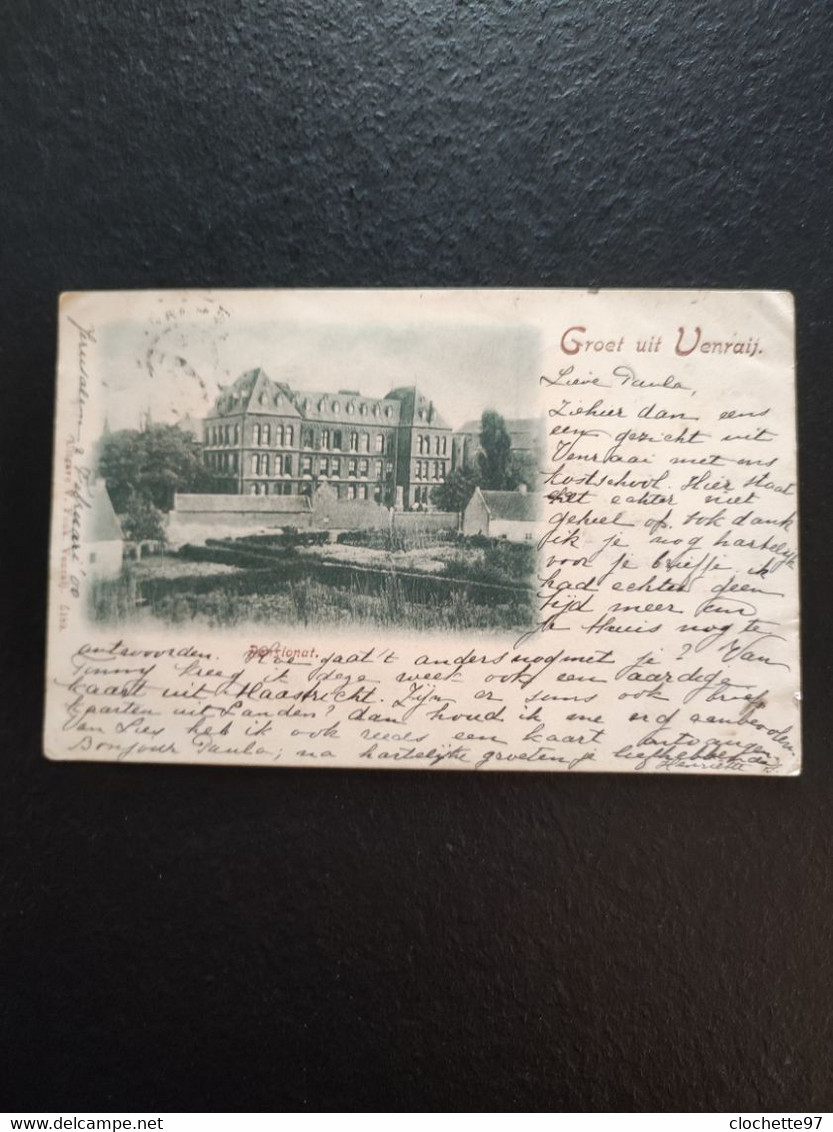 Groet uit Venraij.
Lieve Paula,
Ziehier dan eens
een gezicht uit
Venraai met ons
kostschool. Hier staat
het echter niet
geheel op. Ook dank
ik je nog hartelijk
voor je briefje. ik
had echter geen
tijd meer om
je thuis nog te
antwoorden. Hoe gaat't anders nog met je? Van
Tinny kreeg ik deze week ook een aardige
kaart uit Haastrecht. Zijn er soms ook brief
kaarten uit Landen? dan houd ik me erg aanbevolen
Van Lies heb ik ook reeds een kaart ontvangen.
Bonjour Paula; na hartelijke groeten je liefhebbende
Henriette
Pensionat.
Jerusalem 2 Februari '00
Uitgave V. Venraij
clochette97